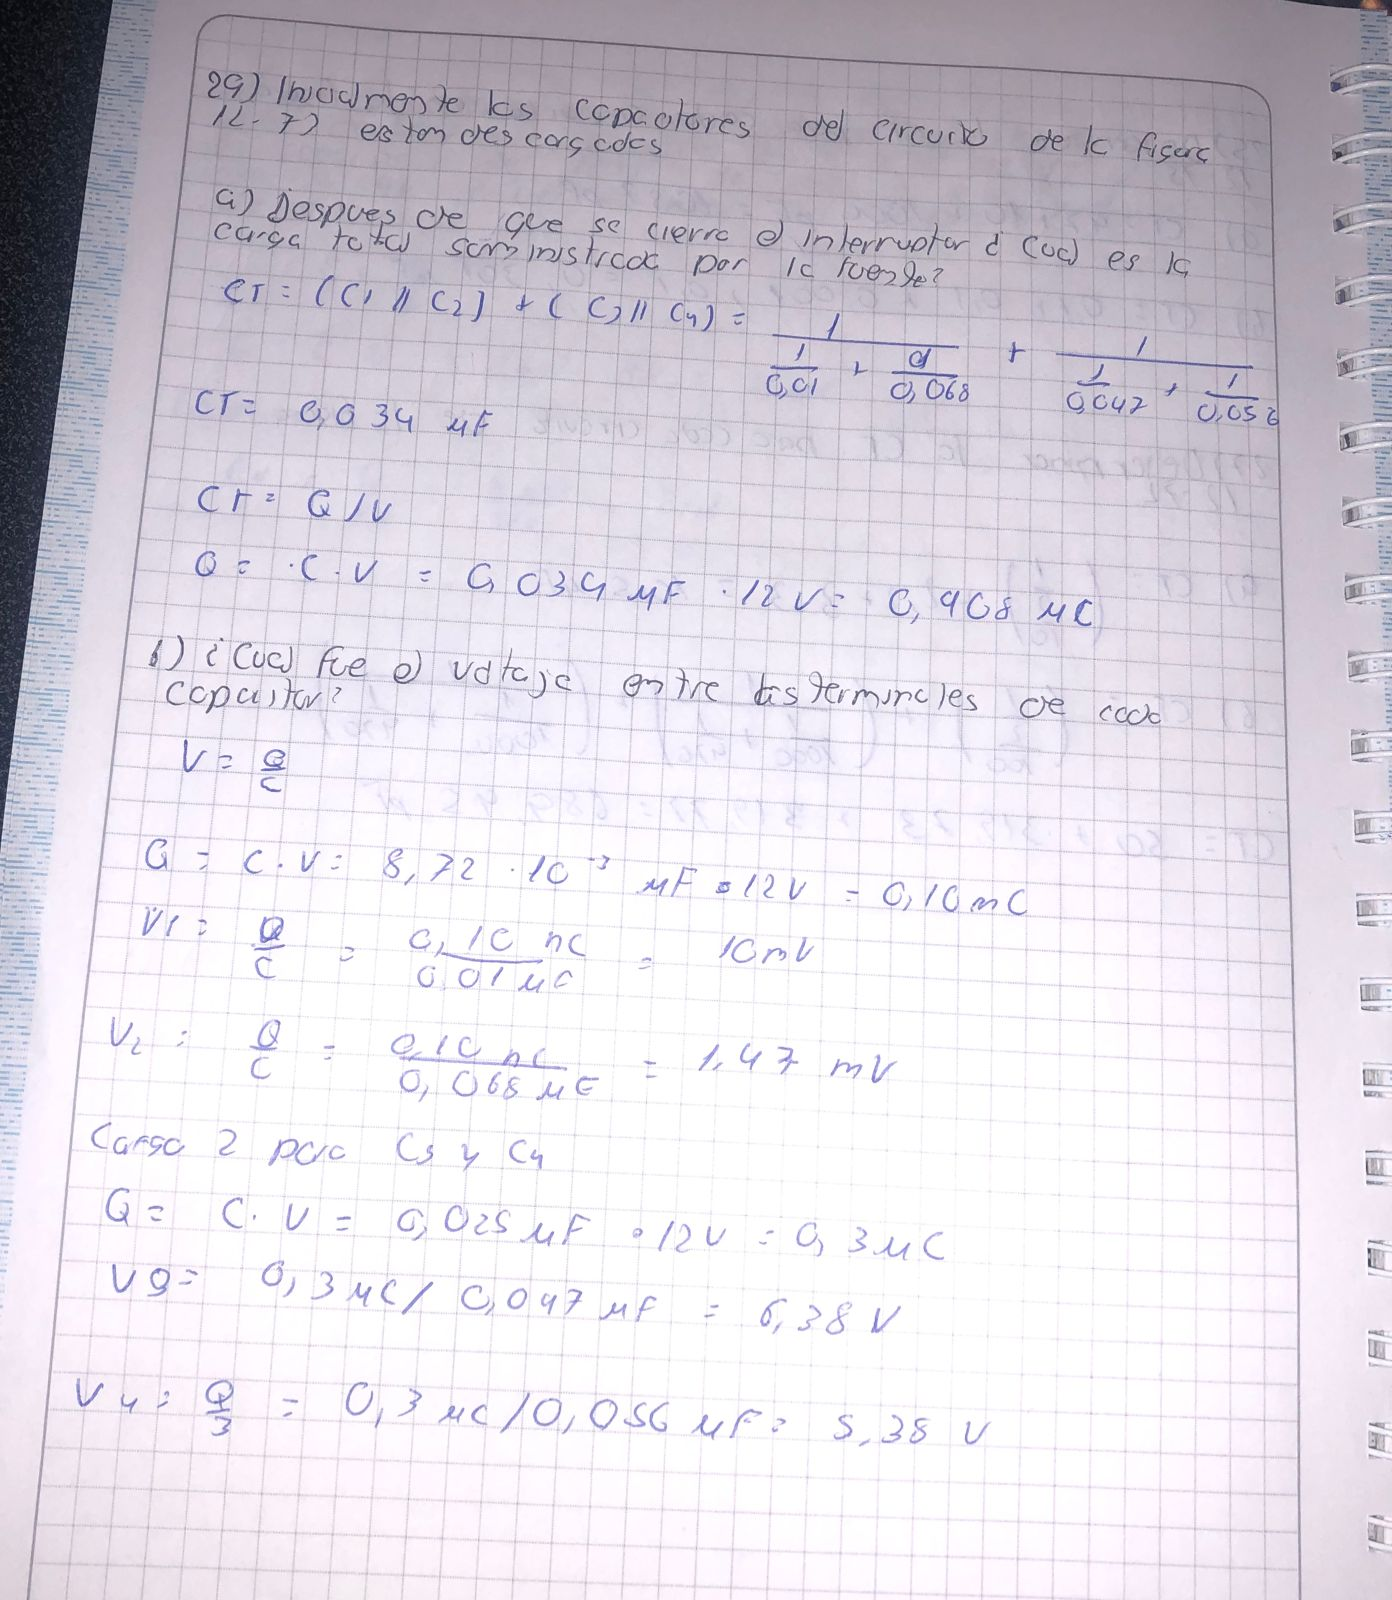 29) Inicialmente los capacitores del circuito de la figura
12-73 estan descargados
a) Despues de que se cierra el interruptor ¿ Cual es la
carga total suministrada por la fuente?
CT = (C1 // C2) + ( C3 // C4) = 1 / (1/0,01 + 1/0,068) + 1 / (1/0,047 + 1/0,056)
CT = 0,034 μF
CT = Q / V
Q = .C . V = 0,034 μF . 12 V = 0,408 μC
b) ¿ Cual fue el voltaje entre las terminales de cada
capacitor?
V = Q/C
Q = C . V = 8,72 . 10⁻³ μF . 12 V = 0,10 mC
V1 = Q/C = 0,10 nC / 0,01 μC = 10 mV
V2 = Q/C = 0,10 nC / 0,068 μC = 1,47 mV
Carga 2 para C3 y C4
Q = C . V = 0,025 μF . 12V = 0,3 μC
V3 = 0,3 μC / 0,047 μF = 6,38 V
V4 = Q/3 = 0,3 μC / 0,056 μF = 5,35 V